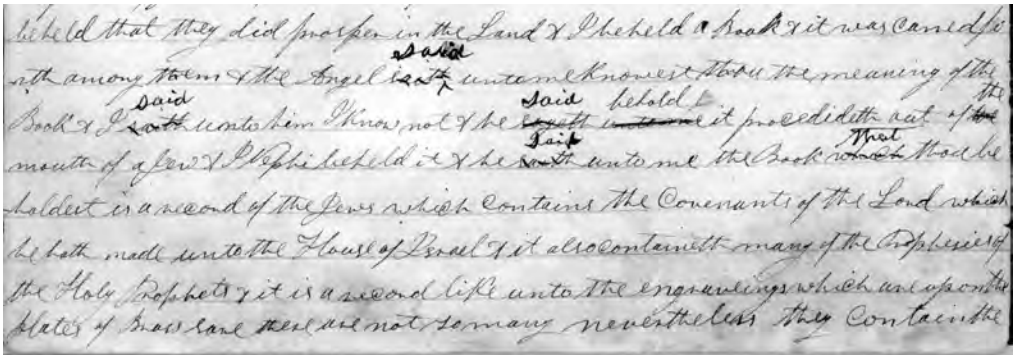 beheld that they did prosper in the Land & I beheld a Book & it was carried fo
said
rth among them & the Angel saith unto me Knowest thou the meaning of the
said said behold the
Book & I saith unto him I Know not & he saith unto me it procedideth out of the
said That
mouth of a Jew & I Nephi beheld it & he saith unto me the Book which thou be
holdest is a record of the Jews which contains the Covenants of the Lord which
he hath made unto the House of Israel & it also containeth many of the Prophesies of
the Holy Prophets & it is a record like unto the engraveings which are upon the
plates of Brass save there are not so many nevertheless they contain the